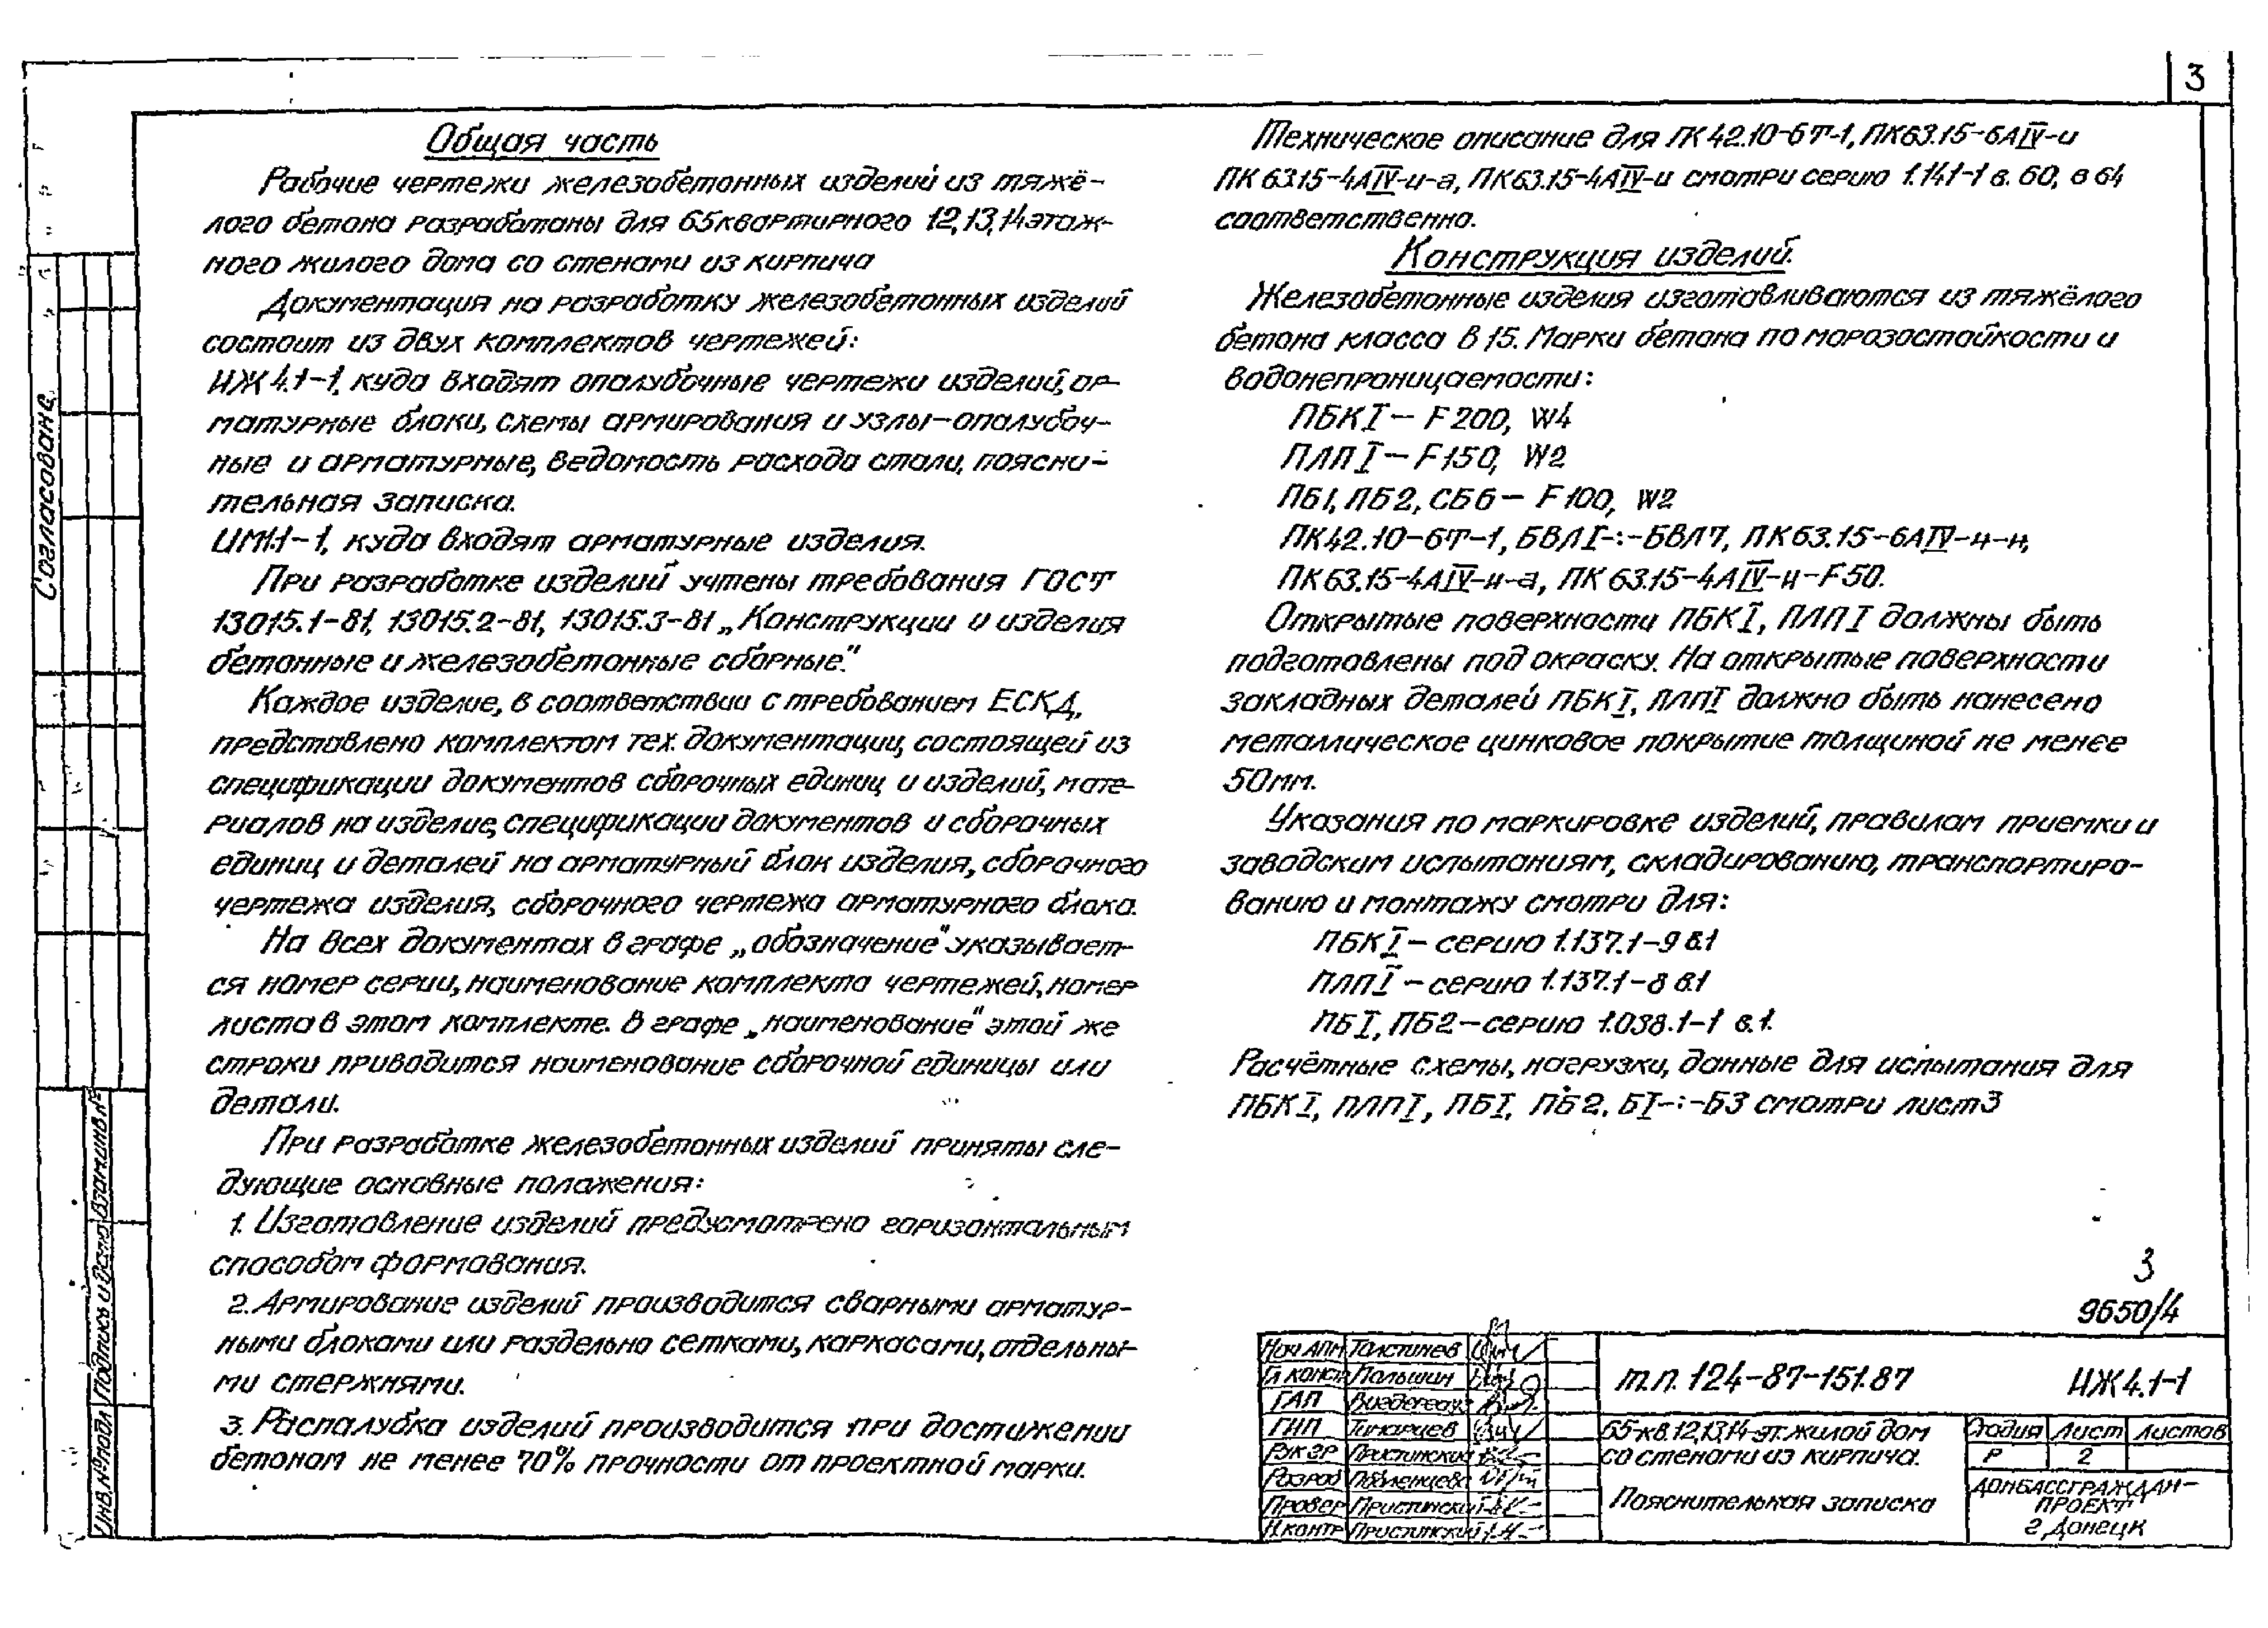 3
Общая часть
Рабочие чертежи железобетонных изделий из тяжё-
лого бетона разработаны для 65квартирного 12,13,14этаж-
ного жилого дома со стенами из кирпича
Документация на разработку железобетонных изделий
состоит из двух комплектов чертежей:
ИЖ4.1-1, куда входят опалубочные чертежи изделий, ар-
матурные блоки, схемы армирования и узлы-опалубоч-
ные и арматурные, ведомость расхода стали, поясни-
тельная записка.
куда входят арматурные изделия.
При разработке изделий учтены требования ГОСТ
13015.1-81, 13015.2-81, 13015.3-81 „Конструкции и изделия
бетонные и железобетонные сборные."
Каждое изделие, в соответствии с требованием ЕСКД,
представлено комплектом тех. документации, состоящей из
спецификации документов сборочных единиц и изделий, мате-
риалов на изделие, спецификации документов и сборочных
единиц и деталей на арматурный блок изделия, сборочного
чертежа изделия, сборочного чертежа арматурного блока.
На всех документах в графе „обозначение" указывает-
ся номер серии, наименование комплекта чертежей, номер
листа в этом комплекте. В графе „наименование" этой же
строки приводится наименование сборочной единицы или
детали.
При разработке железобетонных изделий приняты сле-
дующие основные положения:
1. Изготовление изделий предусмотрено горизонтальным
способом формования.
2. Армирование изделий производится сварными арматур-
ными блоками или раздельно сетками, каркасами, отдельны-
ми стержнями.
3. Распалубка изделий производится при достижении
бетоном не менее 70% прочности от проектной марки.
Техническое описание для ПК42.10-6Т-1, ПК63.15-6АIV-и
ПК63.15-4АIV-и-а, ПК63.15-4АIV-и смотри серию 1.141-1 в. 60, в 64
соответственно.
Конструкция изделий.
Железобетонные изделия изготавливаются из тяжёлого
бетона класса В15. Марки бетона по морозостойкости и
водонепроницаемости:
ПБКI - F200, W4
ПЛПI - F150, W2
ПБ1, ПБ2, СБ6 - F100, W2
ПК42.10-6Т-1, БВЛI-:-БВЛ7, ПК63.15-6АIV-и-н,
ПК63.15-4АIV-и-а, ПК63.15-4АIV-и-F50.
Открытые поверхности ПБКI, ПЛПI должны быть
подготовлены под окраску. На открытые поверхности
закладных деталей ПБКI, ПЛПI должно быть нанесено
металлическое цинковое покрытие толщиной не менее
50мм.
Указания по маркировке изделий, правилам приемки и
заводским испытаниям, складированию, транспортиро-
ванию и монтажу смотри для:
ПБКI - серию 1.137.1-9 в.1
ПЛПI - серию 1.137.1-8 в.1
ПБI, ПБ2 - серию 1.038.1-1 в.1.
Расчётные схемы, нагрузки, данные для испытания для
ПБКI, ПЛПI, ПБI, ПБ2, БI-:-Б3 смотри лист3
3
9650/4
Нач АПМ Толстинев
Гл констр Польшин
ГАП
ГИП
Рук гр Пристинский
Разраб
Провер Пристинский
Н.контр Пристинский
т.п. 124-87-151.87
ИЖ4.1-1
65-кв.12,13,14-эт.жилой дом
со стенами из кирпича.
Стадия Лист Листов
Р 2
Пояснительная записка
ДОНБАССГРАЖДАН-
ПРОЕКТ
г. Донецк
Согласовано
Взам инв.№
Подпись и дата
Инв.№ подл